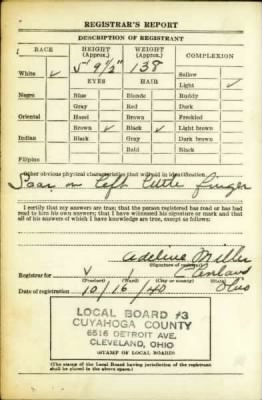 REGISTRAR'S REPORT
DESCRIPTION OF REGISTRANT
RACE HEIGHT (Approx.) WEIGHT (Approx.) COMPLEXION
5' 9 1/2" 138
White ✓ EYES HAIR Sallow
Light ✓
Negro Blue Blonde Ruddy
Gray Red Dark
Oriental Hazel Brown Freckled
Brown ✓ Black ✓ Light brown
Indian Black Gray Dark brown
Bald Black
Filipino
Other obvious physical characteristics that will aid in identification
Scar on left little finger
I certify that my answers are true; that the person registered has read or has had
read to him his own answers; that I have witnessed his signature or mark and that
all of his answers of which I have knowledge are true, except as follows:
Adeline Miller
(Signature of registrar)
Registrar for V 1 Cleveland Ohio
(Precinct) (Ward) (City or county) (State)
Date of registration 10/16/40
LOCAL BOARD #3
CUYAHOGA COUNTY
6516 DETROIT AVE.
CLEVELAND, OHIO
(STAMP OF LOCAL BOARD)
(The stamp of the Local Board having jurisdiction of the registrant
shall be placed in the above space.)